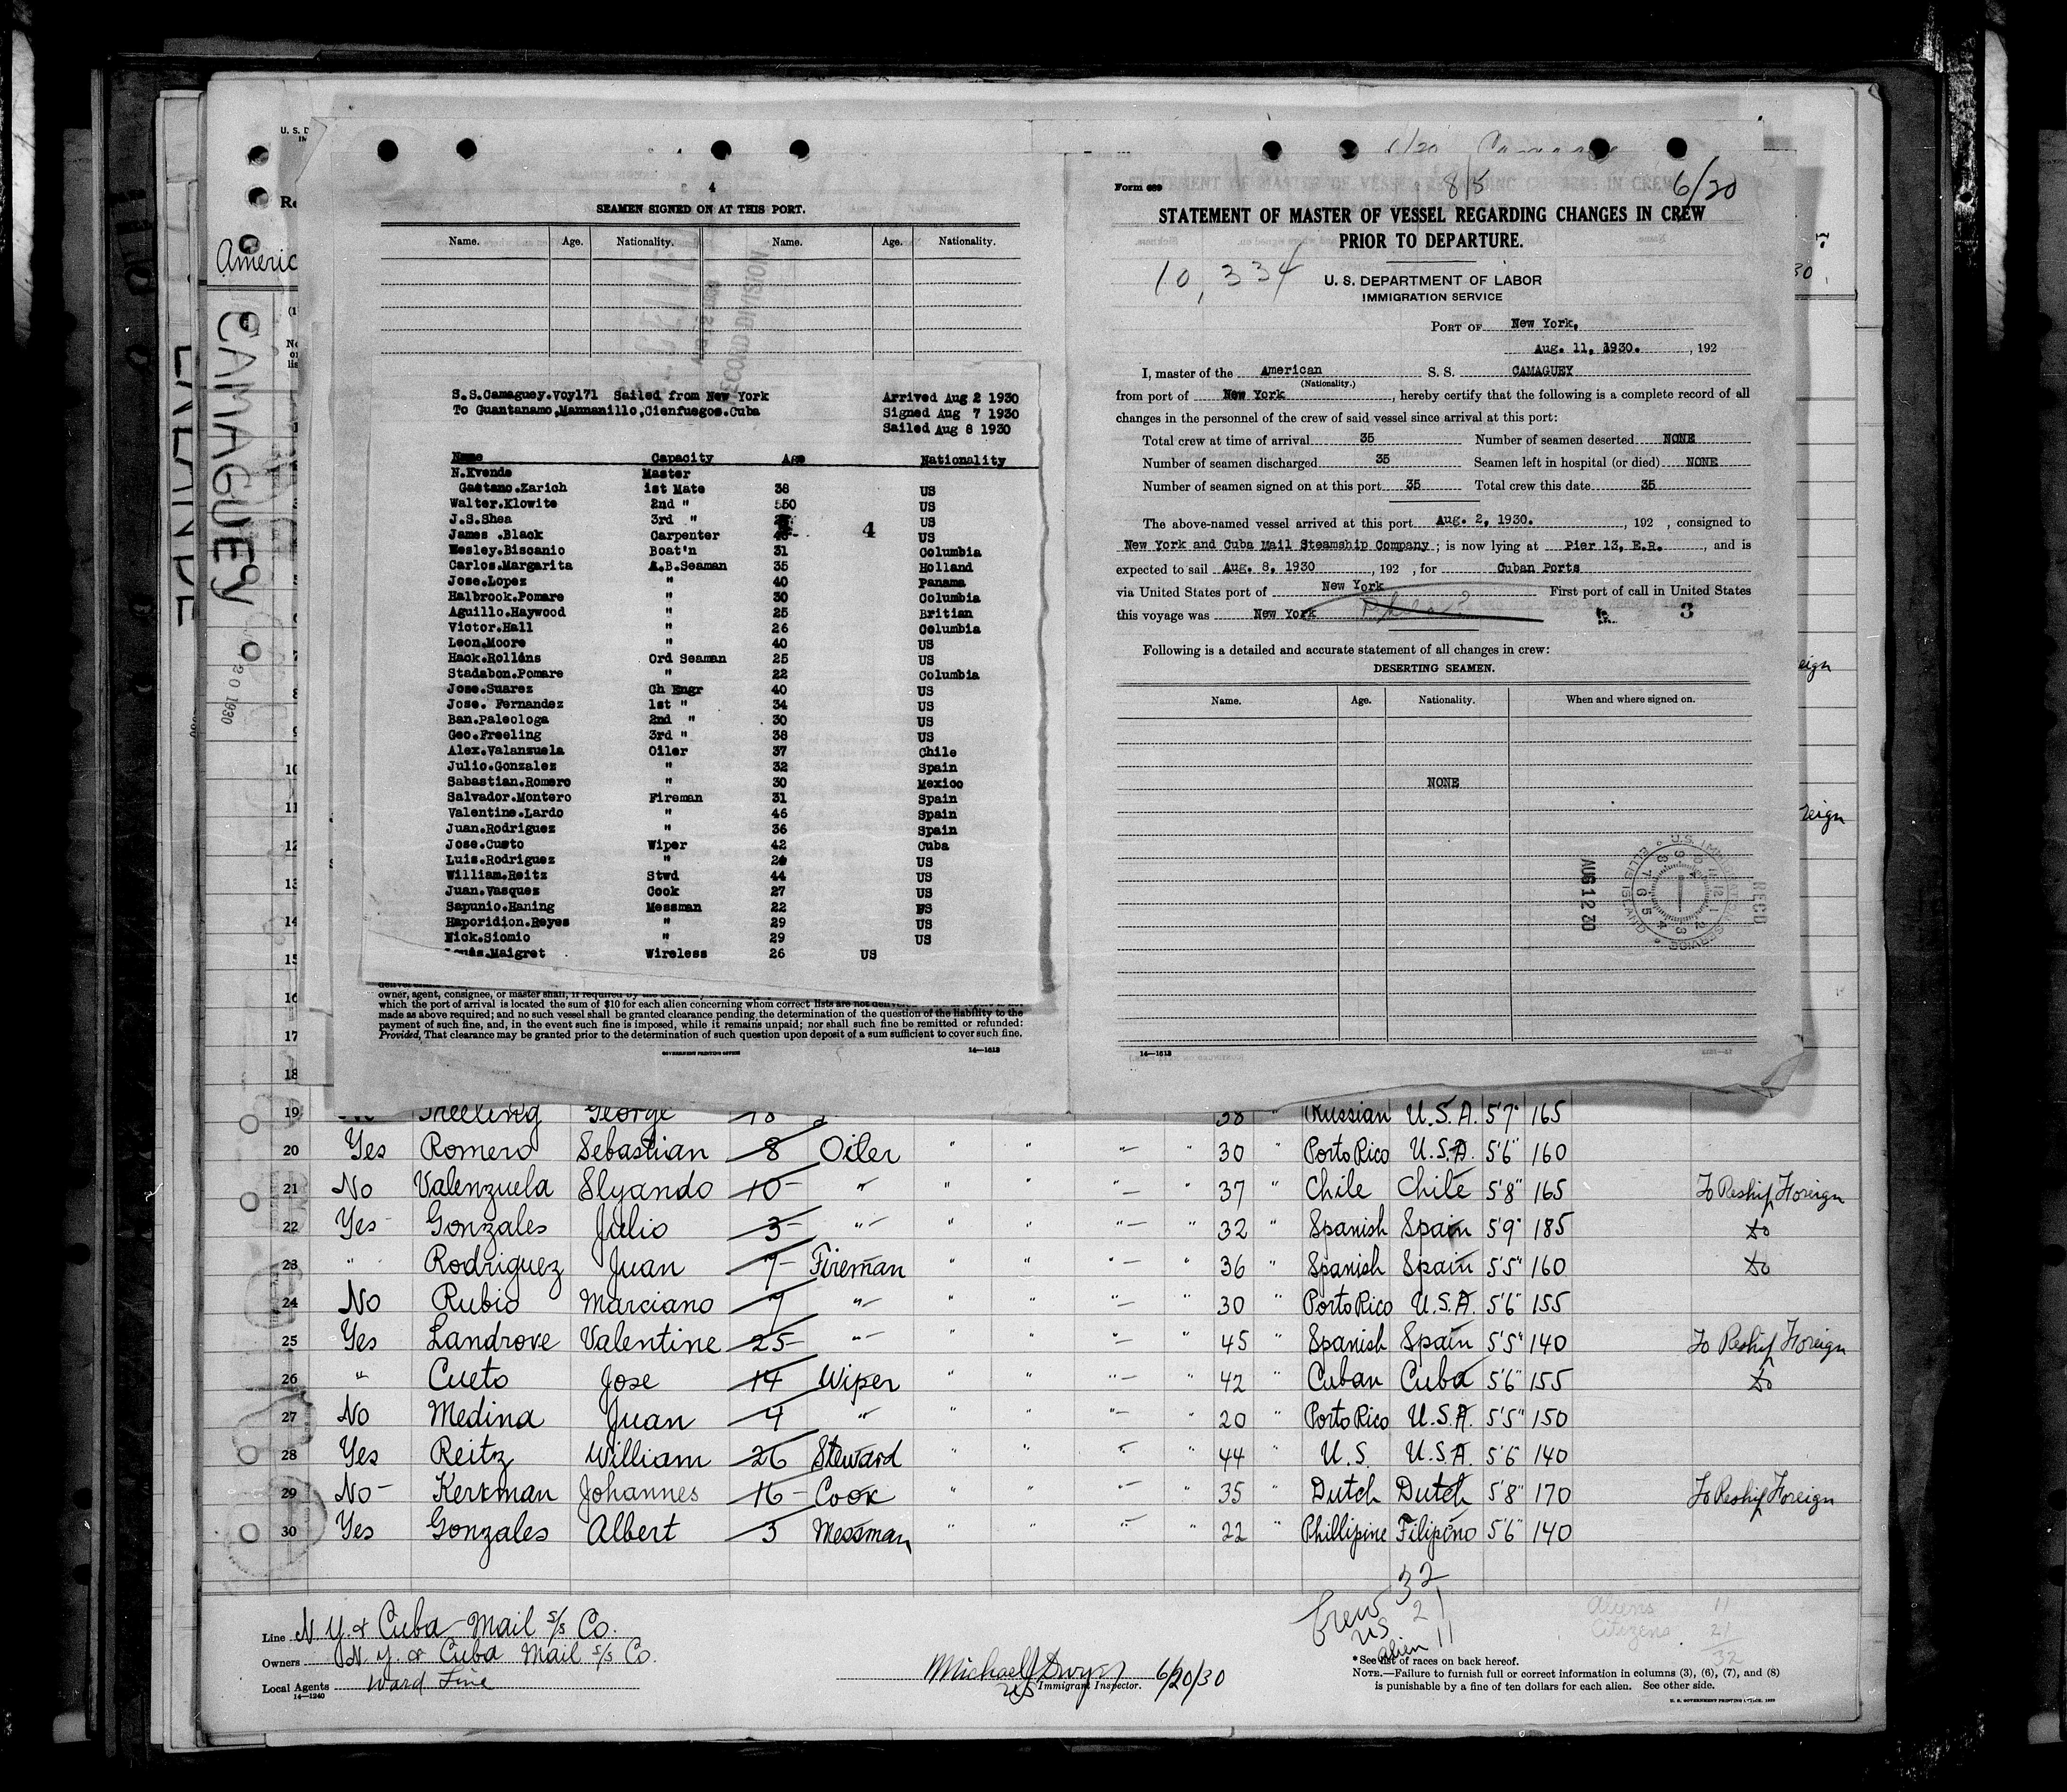 4
SEAMEN SIGNED ON AT THIS PORT.
Name. Age. Nationality. Name. Age. Nationality.
SECOND DIVISION
S.S.Camaguey.Voy171 Sailed from New York Arrived Aug 2 1930
To Guantanamo,Mannanillo,Cienfuegos.Cuba Signed Aug 7 1930
Sailed Aug 8 1930
Name Capacity Age Nationality
N.Kvende Master
Gaetano.Zarich 1st Mate 38 US
Walter.Klowite 2nd " 50 US
J.S.Shea 3rd " US
James .Black Carpenter US
4
Wesley.Biscanio Boat'n 31 Columbia
Carlos.Margarita A.B.Seaman 35 Holland
Jose.Lopez " 40 Panama
Halbrook.Pomare " 30 Columbia
Aguillo.Haywood " 25 Britian
Victor.Hall " 26 Columbia
Leon.Moore " 40 US
Hack.Rollins Ord Seaman 25 US
Stadabon.Pomare " 22 Columbia
Jose.Suarez Ch Engr 40 US
Jose. Fernandez 1st " 34 US
Ban.Paleologa 2nd " 30 US
Geo.Freeling 3rd " 38 US
Alex.Valanzuela Oiler 37 Chile
Julio.Gonzalez " 32 Spain
Sabastian.Romero " 30 Mexico
Salvador.Montero Fireman 31 Spain
Valentine.Lardo " 46 Spain
Juan.Rodriguez " 36 Spain
Jose.Custo Wiper 42 Cuba
Luis.Rodriguez " US
William.Reitz Stwd 44 US
Juan.Vasquez Cook 27 US
Sapunio.Haning Messman 22 US
Haporidion.Reyes " 29 US
Nick.Siomio " 29 US
Maigret Wireless 26 US
owner, agent, consignee, or master shall, if required by the
which the port of arrival is located the sum of $10 for each alien concerning whom correct lists are not
made as above required; and no such vessel shall be granted clearance pending the determination of the question of the liability to the
payment of such fine, and, in the event such fine is imposed, while it remains unpaid; nor shall such fine be remitted or refunded:
Provided, That clearance may be granted prior to the determination of such question upon deposit of a sum sufficient to cover such fine.
GOVERNMENT PRINTING OFFICE 14—1613
6/20 Camaguey
Form 689 815 6/20
STATEMENT OF MASTER OF VESSEL REGARDING CHANGES IN CREW
PRIOR TO DEPARTURE.
10,334
U. S. DEPARTMENT OF LABOR
IMMIGRATION SERVICE
PORT OF New York,
Aug. 11, 1930. , 192
I, master of the American S. S. CAMAGUEY
(Nationality.)
from port of New York , hereby certify that the following is a complete record of all
changes in the personnel of the crew of said vessel since arrival at this port:
Total crew at time of arrival 35 Number of seamen deserted NONE
Number of seamen discharged 35 Seamen left in hospital (or died) NONE
Number of seamen signed on at this port 35 Total crew this date 35
The above-named vessel arrived at this port Aug. 2, 1930. , 192 , consigned to
New York and Cuba Mail Steamship Company ; is now lying at Pier 13, E.R. , and is
expected to sail Aug. 8, 1930 , 192 , for Cuban Ports
via United States port of New York First port of call in United States
this voyage was New York 3
Following is a detailed and accurate statement of all changes in crew:
DESERTING SEAMEN.
Name. Age. Nationality. When and where signed on.
NONE
AUG 12 30
U.S. IMMIGRATION SERVICE ELLIS ISLAND
RECD
14—1613
Americ
CAMAGUEY
20 1930
19 Freeling George 18 38 " Russian U.S.A. 5'7" 165
20 Yes Romero Sebastian 8 Oiler " " " " 30 PortoRico U.S.A. 5'6" 160
21 No Valenzuela Slyando 10 " " " " " 37 " Chile Chile 5'8" 165 To Reship Foreign
22 Yes Gonzales Julio 3 " " " " " 32 " Spanish Spain 5'9" 185 do
23 " Rodriguez Juan 7 Fireman " " " " 36 " Spanish Spain 5'5" 160 do
24 No Rubio Marciano 7 " " " " " 30 " PortoRico U.S.A. 5'6" 155
25 Yes Landrove Valentine 25 " " " " " 45 " Spanish Spain 5'5" 140 To Reship Foreign
26 " Cueto Jose 14 Wiper " " " " 42 " Cuban Cuba 5'6" 155 do
27 No Medina Juan 4 " " " " " 20 " PortoRico U.S.A. 5'5" 150
28 Yes Reitz William 26 Steward " " " " 44 " U.S. U.S.A. 5'6 140
29 No Kerkman Johannes 16 Cook " " " " 35 " Dutch Dutch 5'8" 170 To Reship Foreign
30 Yes Gonzales Albert 3 Messman " " " " 22 " Phillipine Filipino 5'6" 140
Crew 32
US 21
alien 11
Aliens 11
Citizens 21
32
Line N.Y. & Cuba Mail S/S Co.
Owners N.Y. & Cuba Mail S/S Co.
Local Agents Ward Line
14—1240
Michael J Dwyer 6/20/30
US Immigrant Inspector.
*See list of races on back hereof.
NOTE.—Failure to furnish full or correct information in columns (3), (6), (7), and (8)
is punishable by a fine of ten dollars for each alien. See other side.
U. S. GOVERNMENT PRINTING OFFICE: 1929